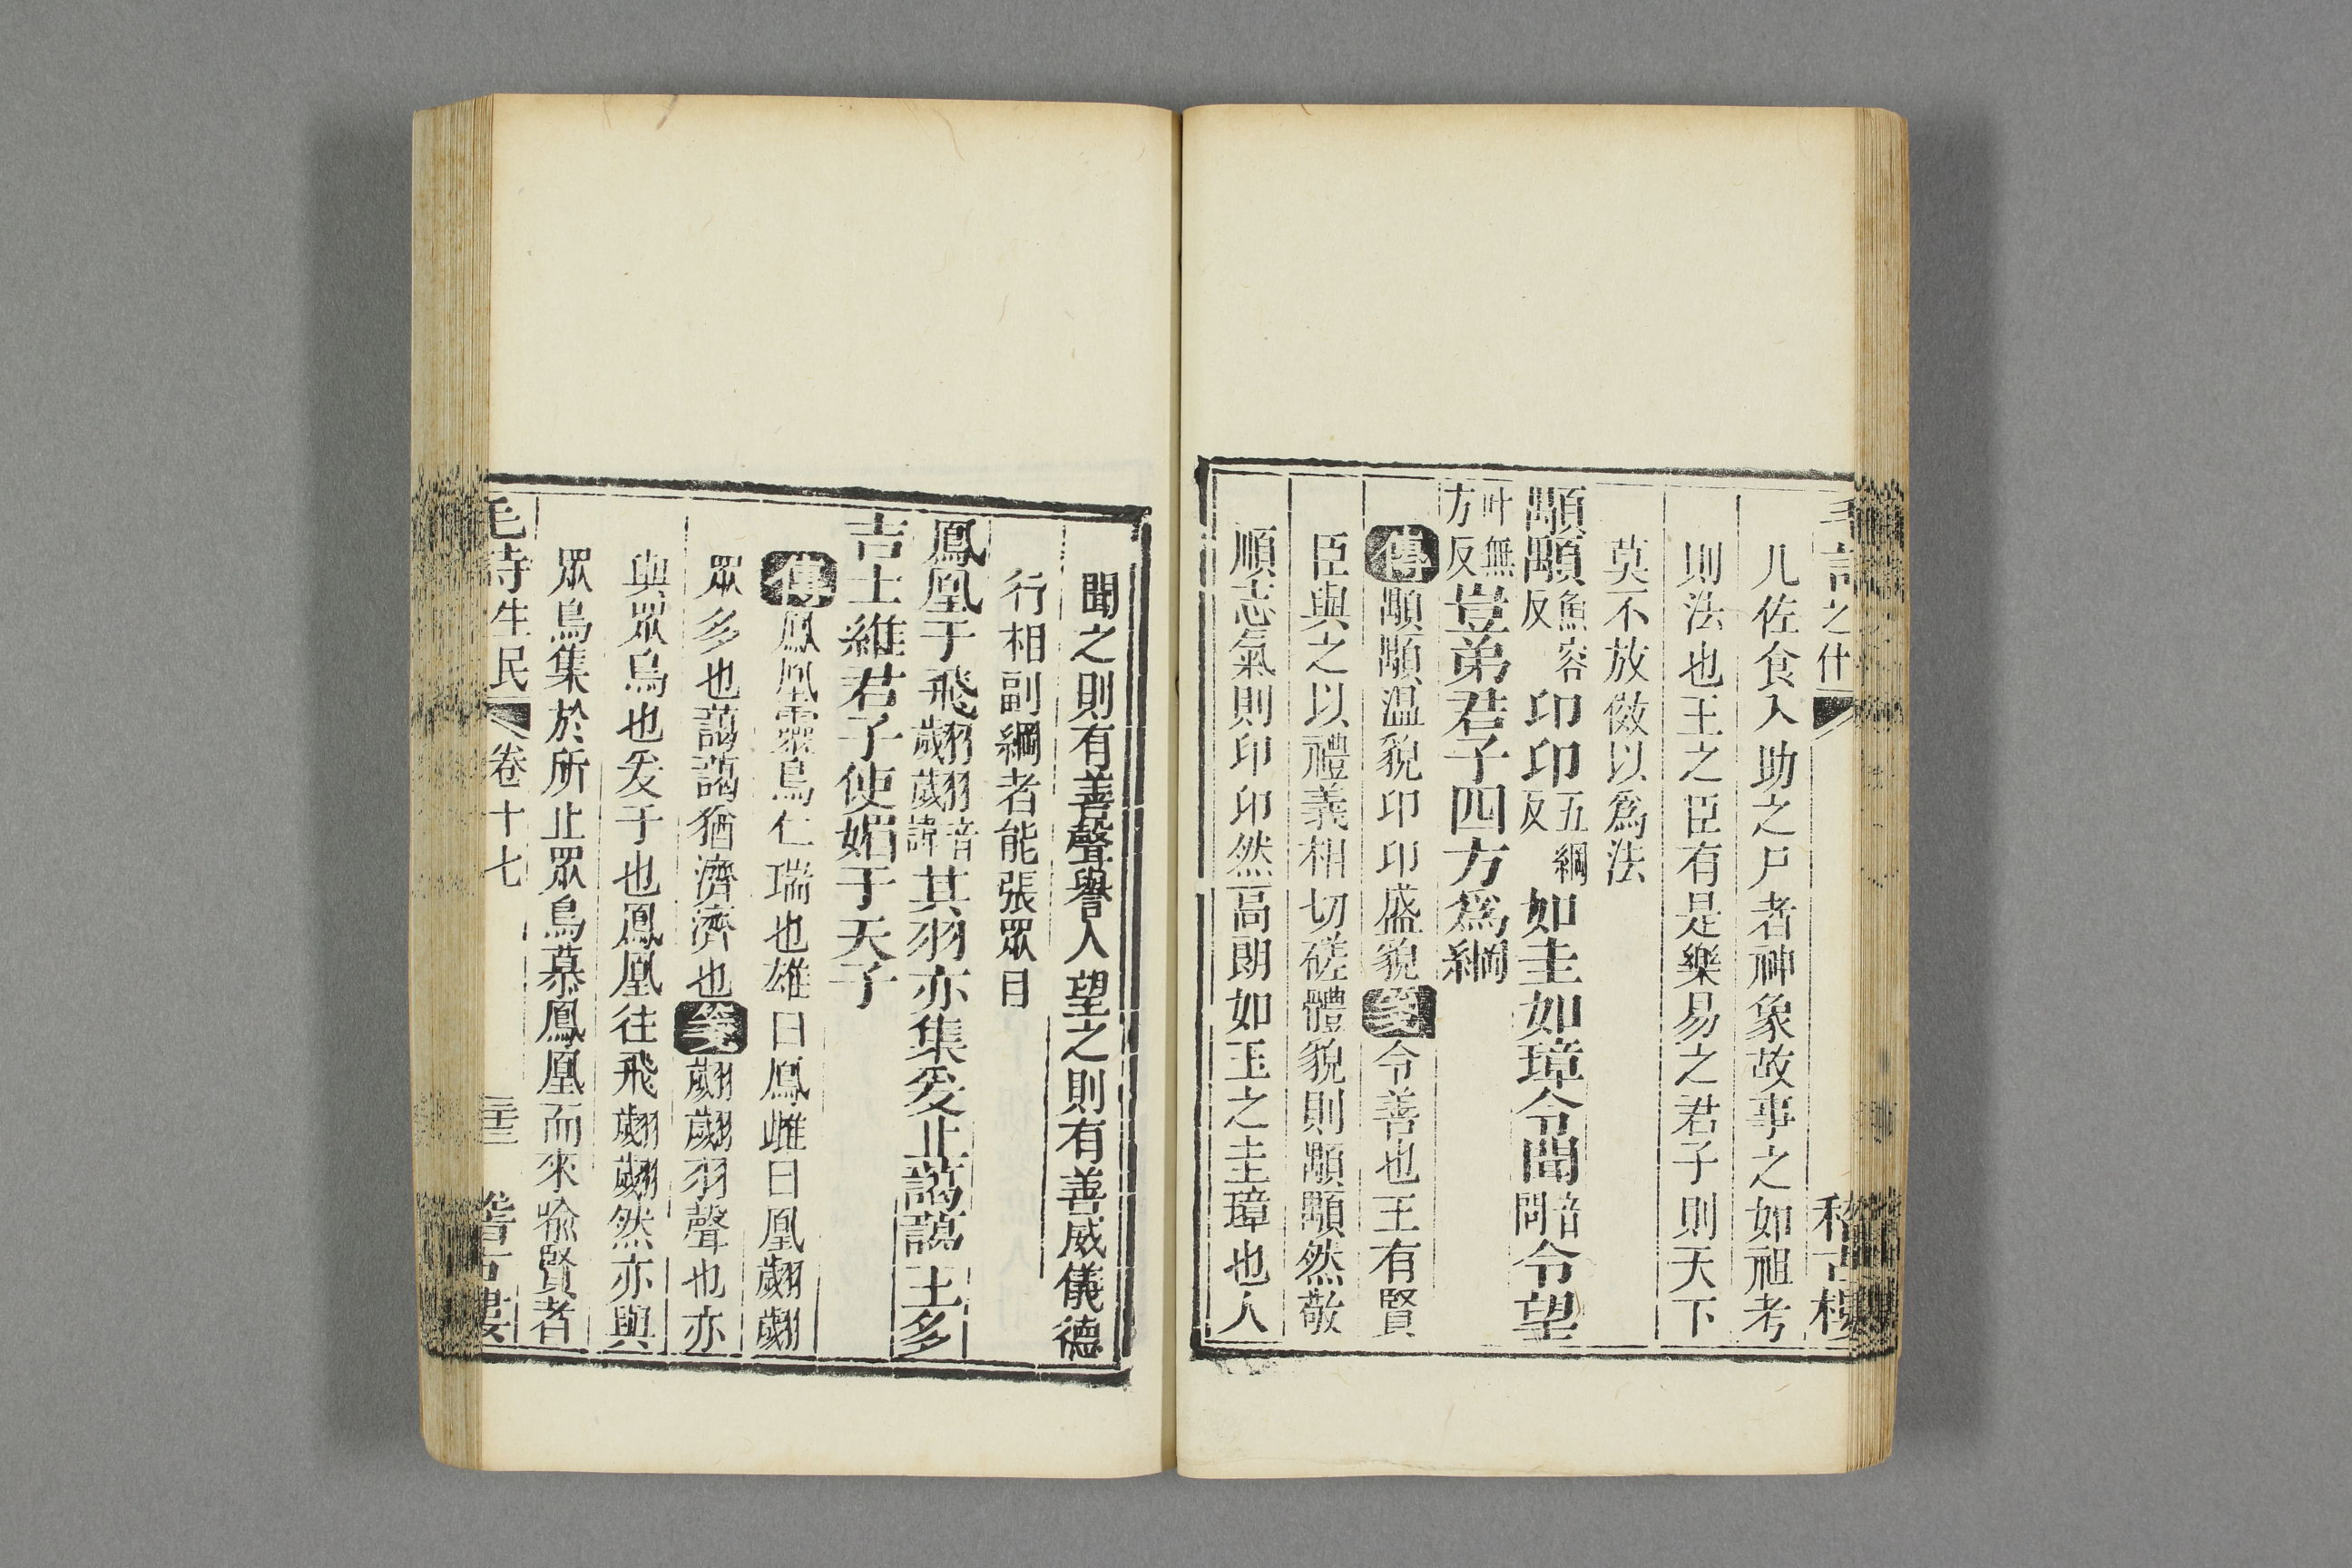 几佐食入助之尸者神象故事之如祖考
則法也王之臣有是樂易之君子則天下
莫不放傚以爲法
顒顒魚容反卬卬五綱反如圭如璋令聞音問令望
叶無方反豈弟君子四方爲綱
傳顒顒温貌卬卬盛貌箋令善也王有賢
臣與之以禮義相切磋體貌則顒顒然敬
順志氣則卬卬然高朗如玉之圭璋也人
聞之則有善聲譽人望之則有善威儀德
行相副綱者能張眾目
鳳凰于飛翽翽音諱其羽亦集爰止藹藹王多
吉士維君子使媚于天子
傳鳳凰靈鳥仁瑞也雄曰鳳雌曰凰翽翽
眾多也藹藹猶濟濟也箋翽翽羽聲也亦
與眾鳥也爰于也鳳凰往飛翽翽然亦與
眾鳥集於所止眾鳥慕鳳凰而來喻賢者
毛詩生民 卷十七 稽古樓